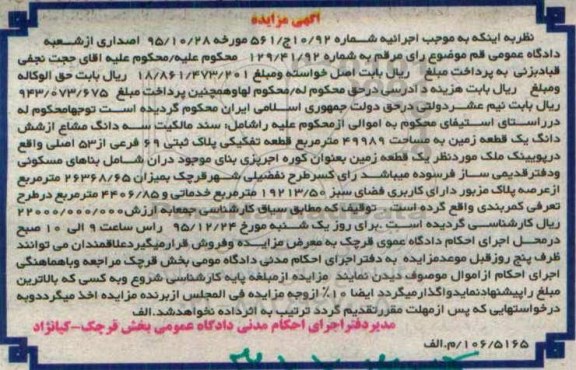 آگهی مزایده
نظر به اینکه به موجب اجرائیه شماره ۱۰/۹۲ج/۵۶۱ مورخه ۹۵/۱۰/۲۸ اصداری ازشعبه
دادگاه عمومی قم موضوع رای مرقم به شماره ۱۲۹/۴۱/۹۲ محکوم علیه/محکوم علیه اقای حجت نجفی
قبادبزنی به پرداخت مبلغ ریال بابت اصل خواسته ومبلغ ۱۸/۸۶۱/۴۷۳/۲۰۱ ریال بابت حق الوکاله
ومبلغ ریال بابت هزینه دادرسی درحق محکوم له/محکوم لهاوهمچنین پرداخت مبلغ ۹۴۳/۰۷۳/۶۷۵
ریال بابت نیم عشردولتی درحق دولت جمهوری اسلامی ایران محکوم گردیده است توجهامحکوم له
درراستای استیفای محکوم به اموالی ازمحکوم علیه راشامل: سند مالکیت سه دانگ مشاع ازشش
دانگ یک قطعه زمین به مساحت ۴۹۹۸۹ مترمربع قطعه تفکیکی پلاک ثبتی ۶۹ فرعی از۵۳ اصلی واقع
درپویینک ملک موردنظر یک قطعه زمین بعنوان کوره اجرپزی بنای موجود دران شامل بناهای مسکونی
ودفترقدیمی ساز فرسوده میباشد رای کسرطرح تفضیلی شهرقرچک بمیزان ۲۶۳۶۸/۶۵ مترمربع
ازعرصه پلاک مزبور دارای کاربری فضای سبز ۱۹۲۱۳/۵۰ مترمربع خدماتی و۴۴۰۶/۸۵ مترمربع درطرح
تعرفی کمربندی واقع گرده است. توقیف که مطابق سیاق کارشناسی جمعابه ارزش ۲۲۰۰۰/۰۰۰/۰۰۰
ریال کارشناسی گردیده است .برای روز یک شنبه مورخ ۹۵/۱۲/۲۴ راس ساعت ۹ الی ۱۰ صبح
درمحل اجرای احکام دادگاه عموی قرچک به معرض مزایده وفروش قرارمیگیردعلاقمندان می توانند
ظرف پنج روزقبل موعدمزایده به دفتراجرای احکام مدنی دادگاه مومی بخش قرچک مراجعه وباهماهنگی
اجرای احکام ازاموال موصوف دیدن نمایند مزایده ازمبلغه پایه کارشناسی شروع وبه کسی که بالاترین
مبلغ راپیشنهادنمایدواگذارمیگردد ایضا ۱۰٪ ازوجه مزایده فی المجلس ازبرنده مزایده اخذ میگرددوبه
درخواستهایی که پس ازمهلت مقررتقدیم گردد ترتیب به اثرداده نخواهدشد.الف
مدیردفتراجرای احکام مدنی دادگاه عمومی بخش قرچک-کیانژاد
۱۰۶/۵۱۶۵/م.الف